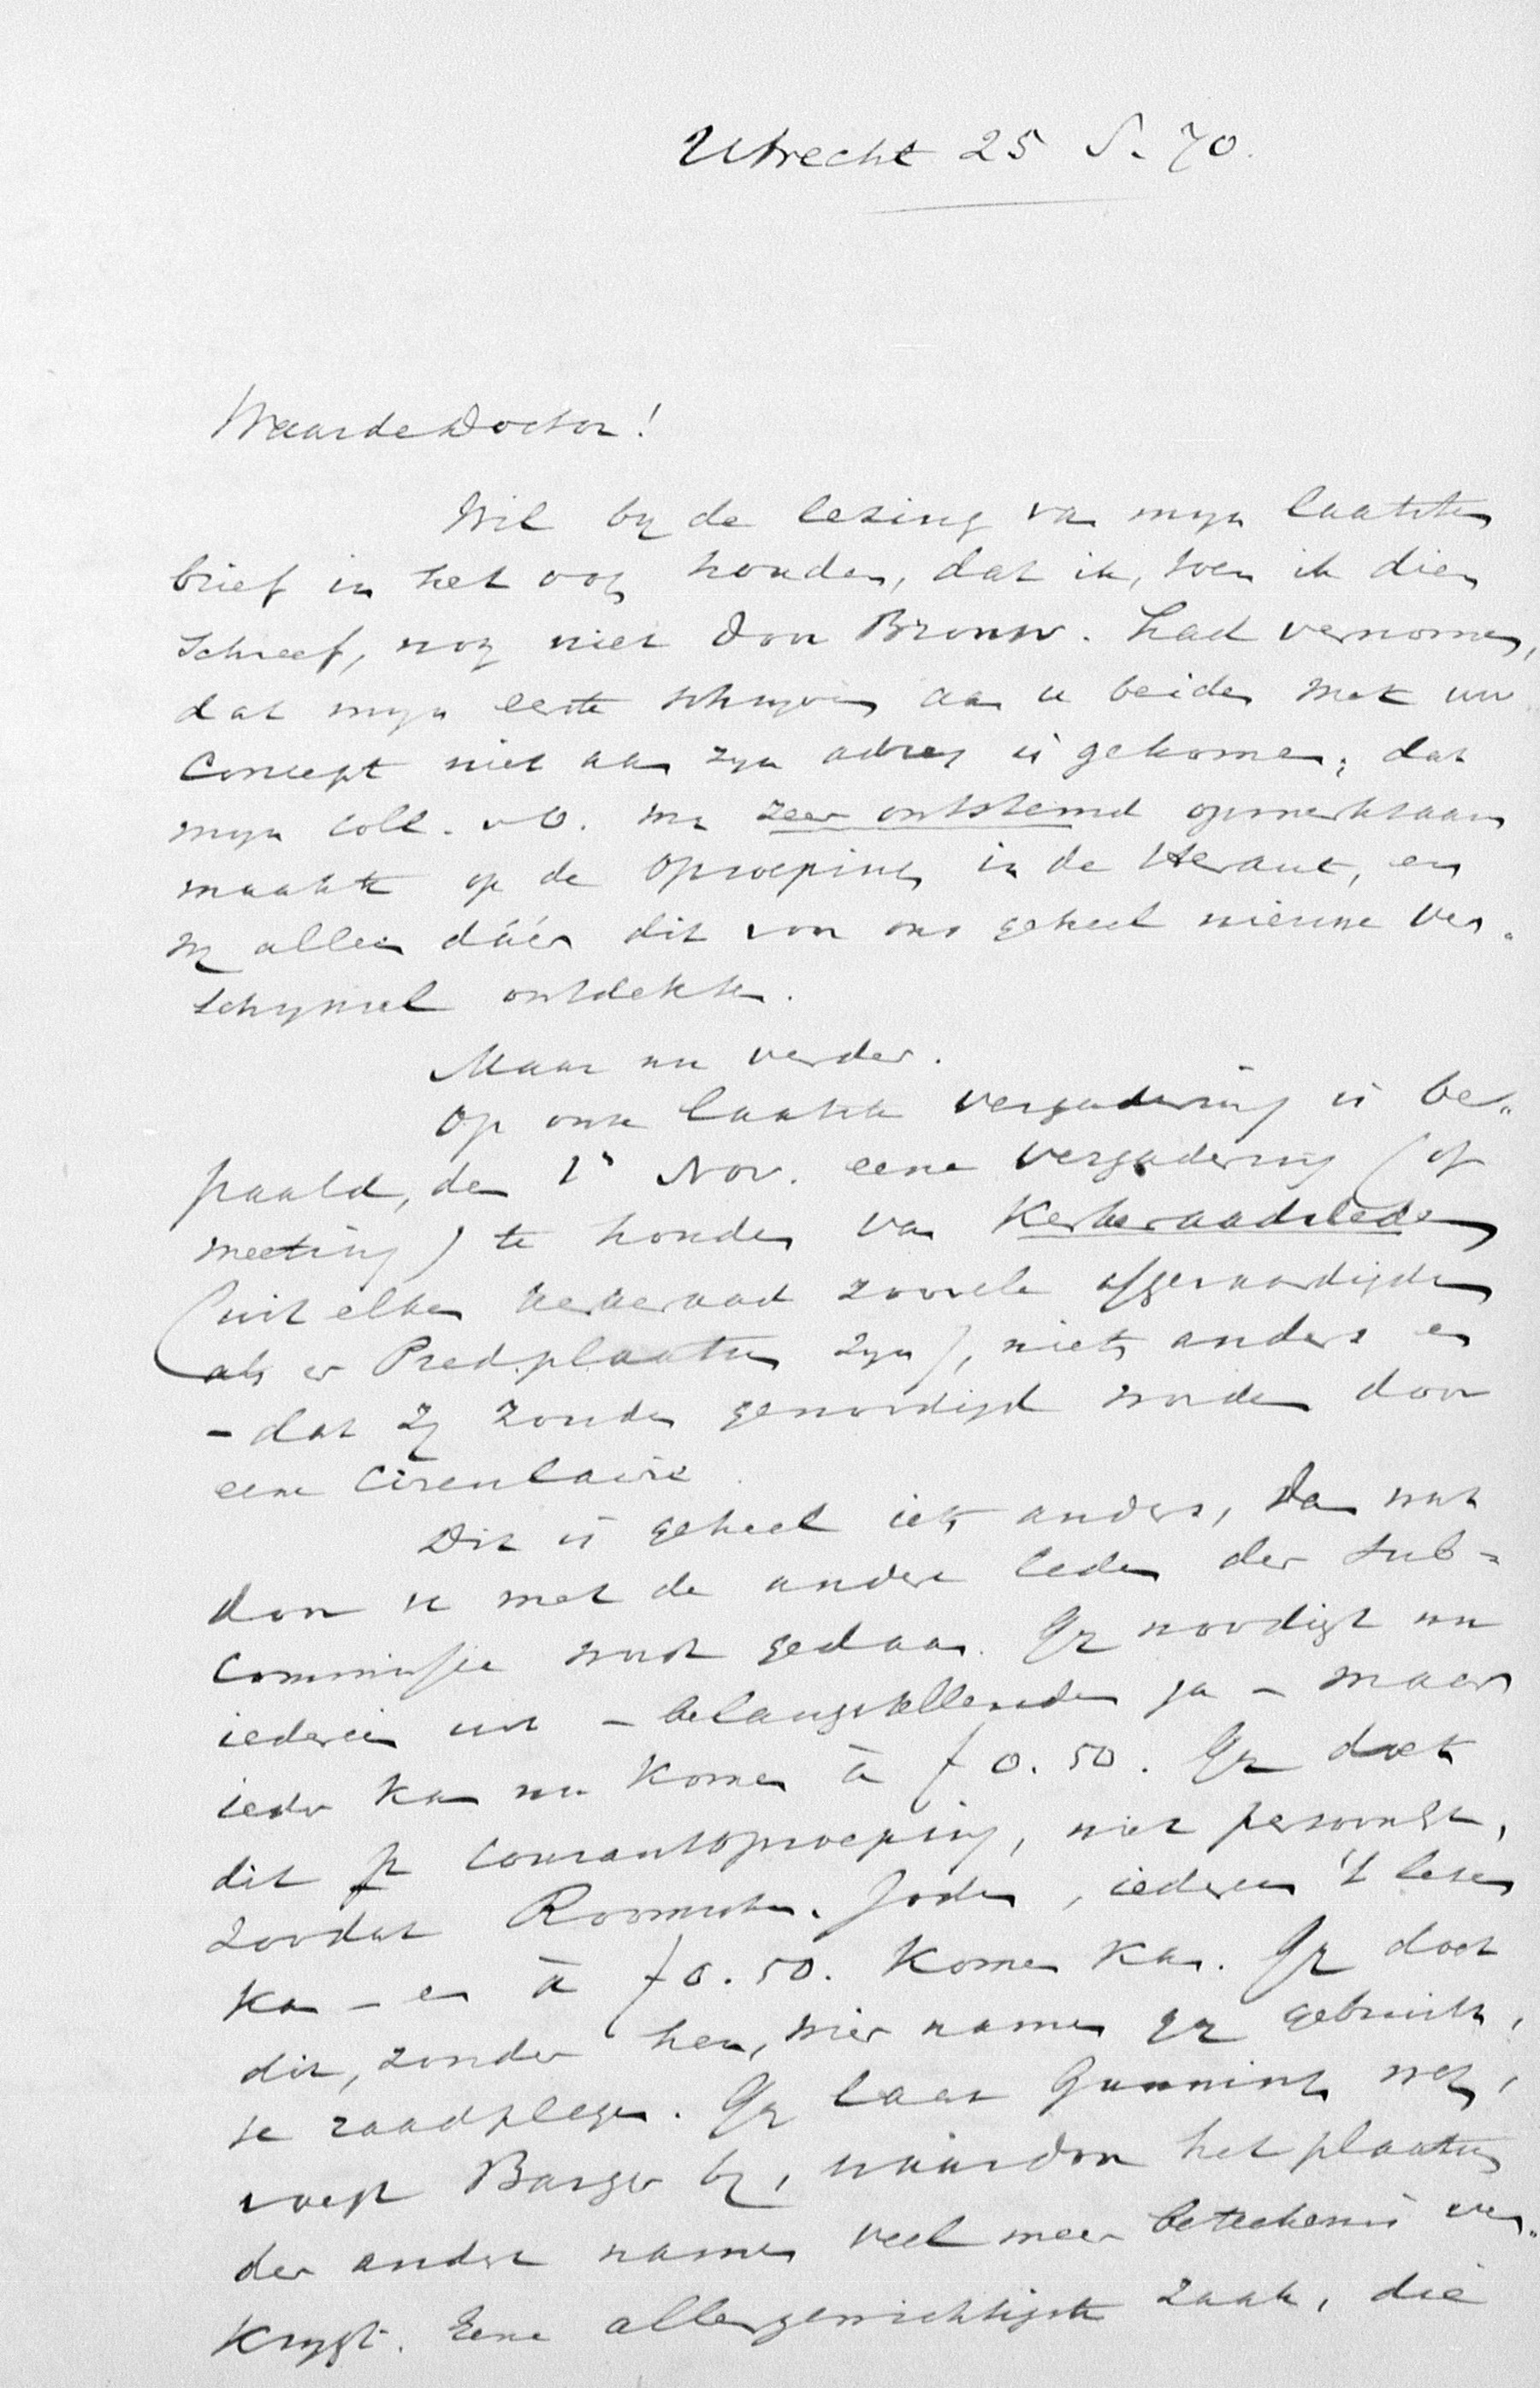 Utrecht 25 S. 70.
Waarde Doctor!
Wil by de lezing van myn laatsten
brief in het oog houden, dat ik, toen ik dien
schreef, nog niet door Bronsv. had vernomen,
dat myn eerste schryven aan u beiden met uw
concept niet aan zyn adres is gekomen; dat
myn coll. v O. my zeer ontstemd opmerkzaam
maakte op de oproeping in de Heraut, en
wy allen dáár dit voor ons geheel nieuwe ver-
schynsel ontdekten.
Maar nu verder.
Op onze laatste vergadering is be-
paald, den 1n Nov. eene vergadering (of
meeting) te houden van Kerkeraadsleden
(uit elken kerkeraad zooveele afgevaardigden
als er Pred.plaatsen zyn), niets anders en
- dat zy zouden genoodigd worden door
eene Circulaire.
Dit is geheel iets anders, dan wat
door u met de andere leden der Sub-
commissie wordt gedaan. Gy noodigt nu
iedereen uit - belangstellenden ja - maar
ieder kan nu komen à f 0.50. Gy doet
dit p. Courantoproeping, niet persoonlyk,
zoodat Roomschen, Joden, iedereen 't lezen
kan - en à f 0.50. komen kan. Gy doet
dit, zonder hen, wier namen gy gebruikt,
te raadplegen. Gy laat Gunning weg,
roept Barger by, waardoor het plaatsen
der andere namen veel meer beteekenis ver-
krygt. Eene allergewichtigste zaak, die